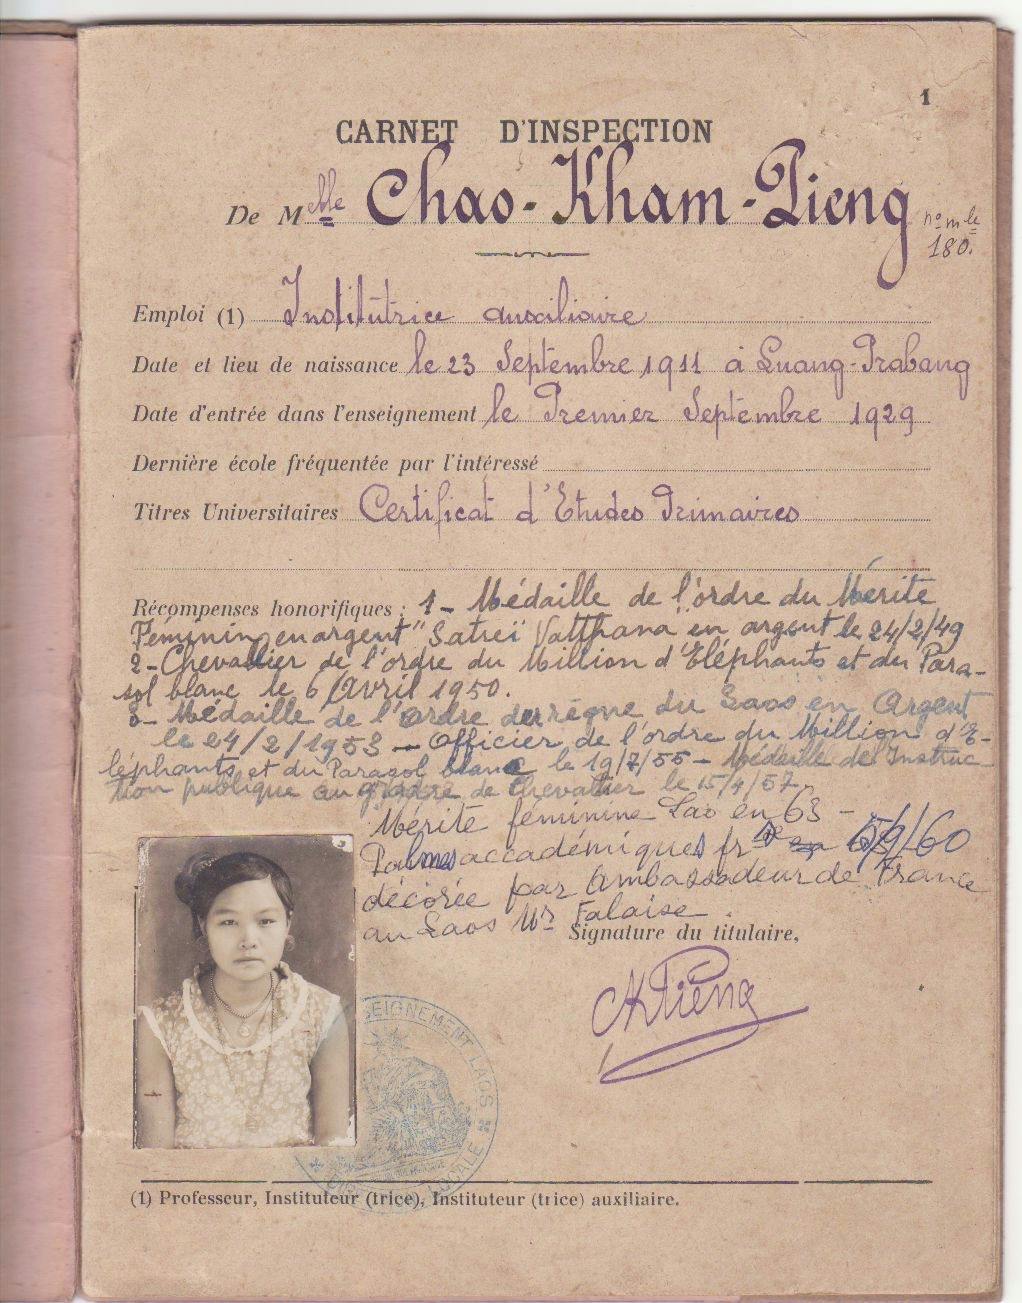 1
CARNET D'INSPECTION
De Melle Chao-Kham-Pieng
no mle
180.
Emploi (1) Institutrice auxiliaire
Date et lieu de naissance le 23 Septembre 1911 à Luang-Prabang
Date d'entrée dans l'enseignement le Premier Septembre 1929
Dernière école fréquentée par l'intéressé
Titres Universitaires Certificat d'Etudes Primaires
Récompenses honorifiques : 1 - Médaille de l'ordre du Mérite
Féminin en argent "Satreï Vatthana en argent le 24/2/49
2 - Chevallier de l'ordre du Million d'Eléphants et du Para-
sol blanc le 6 Avril 1950.
3 - Médaille de l'ordre du règne du Laos en Argent
le 24/2/1953 - Officier de l'ordre du Million d'E-
léphants et du Parasol blanc le 19/7/55 - Médaille de Instruc-
tion publique au grade de Chevallier le 15/4/57
Mérite féminine Lao en 63 -
Palmes accadémiques fr /9/60
décorée par Ambassadeur de France
au Laos Mr Falaise.
Signature du titulaire,
Pieng
SEIGNEMENT LAOS
LOCALE
(1) Professeur, Instituteur (trice), Instituteur (trice) auxiliaire.